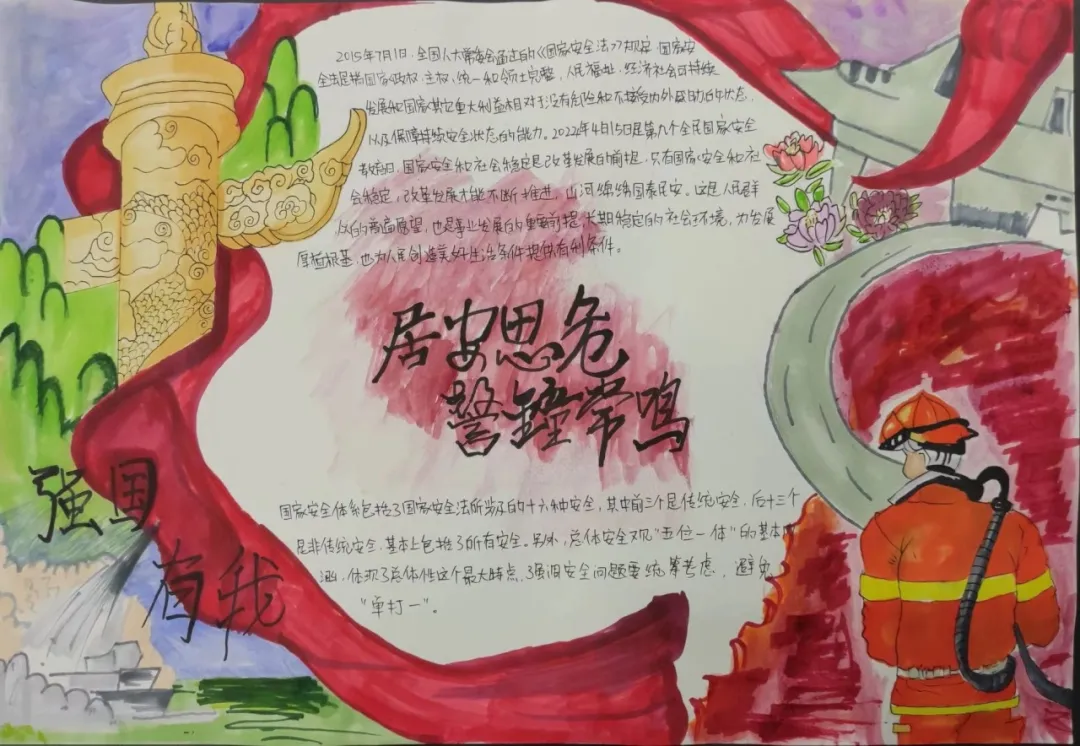 2015年7月1日,全国人大常委会通过的《国家安全法》规定:国家安
全法是指国家政权、主权、统一和领土完整,人民福祉、经济社会可持续
发展和国家其它重大利益相对于没有危险和不接受内外威胁的状态,
以及保障持续安全状态的能力。2022年4月15日是第九个全民国家安全
教育日,国家安全和社会稳定是改革发展的前提,只有国家安全和社
会稳定,改革发展才能不断推进,山河绵绵国泰民安。这是人民群
众的普遍愿望,也是事业发展的重要前提,长期稳定的社会环境,为发展
厚植根基,也为人民创造美好生活条件提供有利条件。
居安思危
警钟常鸣
国家安全体系包括了国家安全法所鉴的十六种安全,其中前三个是传统安全,后十三个
是非传统安全,基本上包括了所有安全。另外,总体安全观"五位一体"的基本内
涵,体现了总体性这个最大特点,强调安全问题要统筹考虑,避免
"单打一"。
强国
有我